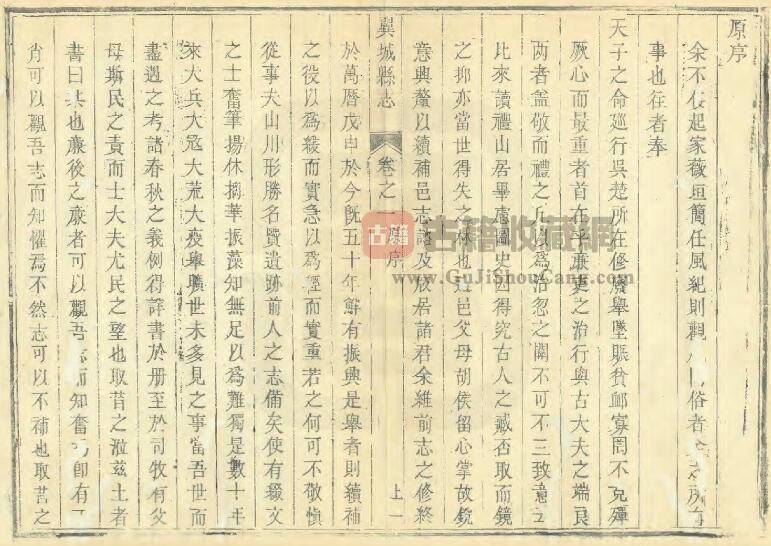 原序
余不佞起家薇垣簡任風紀則觀 風俗者
事也往者奉
天子之命廵行吳楚所在修廢舉墜賑貧卹寡罔不克殫
厥心而最重者首在乎 之治行與古大夫之端良
两者盖敬而禮之 以爲治忽之關不可不三致意
比來讀禮山居畢慮圖史 得究古人之臧否取而鏡
之抑亦當世得失之林也 邑父母胡侯留心掌故銳
意興釐以續補邑志 及於居諸君余維前志之修終
翼城縣志
卷之一
原序
上一
於萬曆戊申於今旣五十年鮮有振興是舉者則續補
之役以爲緩而實急以爲輕而實重若之何可不敬愼
從事夫山川形勝名賢遺跡前人之志備矣使有綴文
之士奮筆揚休摛華振藻知無足以爲難獨是數十年
來大兵大寇大荒大疫舉曠世未多見之事當吾世而
盡遇之考諸春秋之義例得詳書於册至於司牧有父
母斯民之責而士大夫尤民之望也取昔之涖兹土者
書曰某也廉後之廉者可以觀吾志而知奮 卽有
肖可以觀吾志而知懼焉不然志可以不補也取昔之
古籍
古籍收藏網
www.GuJiShouCang.com